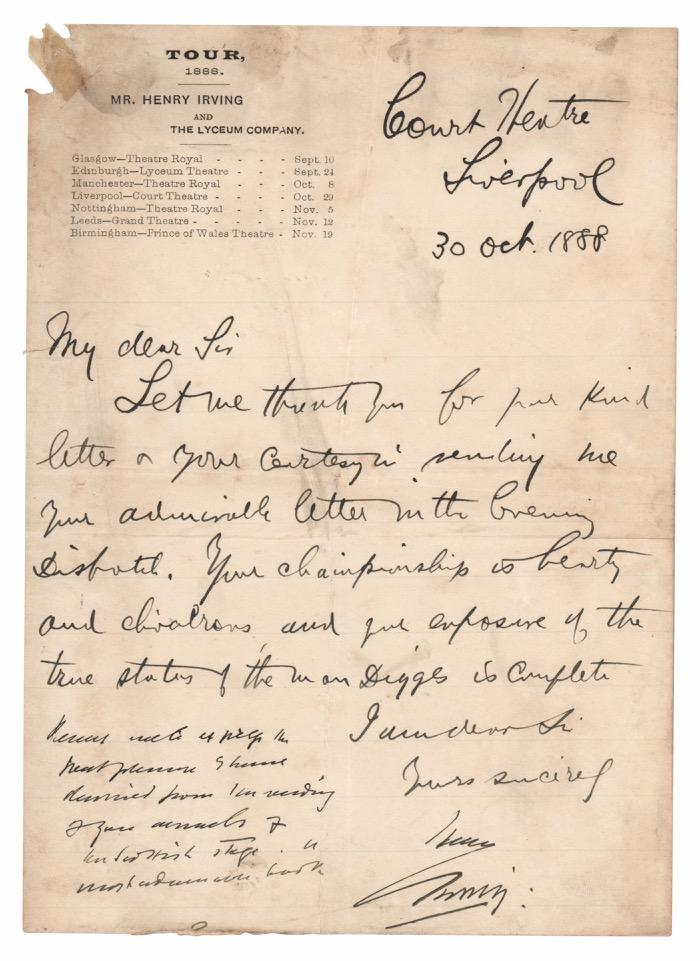 TOUR,
1888.
MR. HENRY IRVING
AND
THE LYCEUM COMPANY.
Glasgow—Theatre Royal - - - - Sept. 10
Edinburgh—Lyceum Theatre - - - Sept. 24
Manchester—Theatre Royal - - - Oct. 8
Liverpool—Court Theatre - - - - Oct. 29
Nottingham—Theatre Royal - - - Nov. 5
Leeds—Grand Theatre - - - - - Nov. 12
Birmingham—Prince of Wales Theatre - Nov. 19
Court Theatre
Liverpool
30 Oct. 1888
My dear Sir
Let me thank you for your kind
letter & your courtesy in sending me
your admirable letter in the Evening
Dispatch. Your championship is hearty
and chivalrous, and your exposure of the
true status of the man Digges is complete
I am dear Sir
Yours sincerely
Henry
Irving.
me to express the
great pleasure I have
derived from the reading
of your annals of
the Scottish stage. a
most book